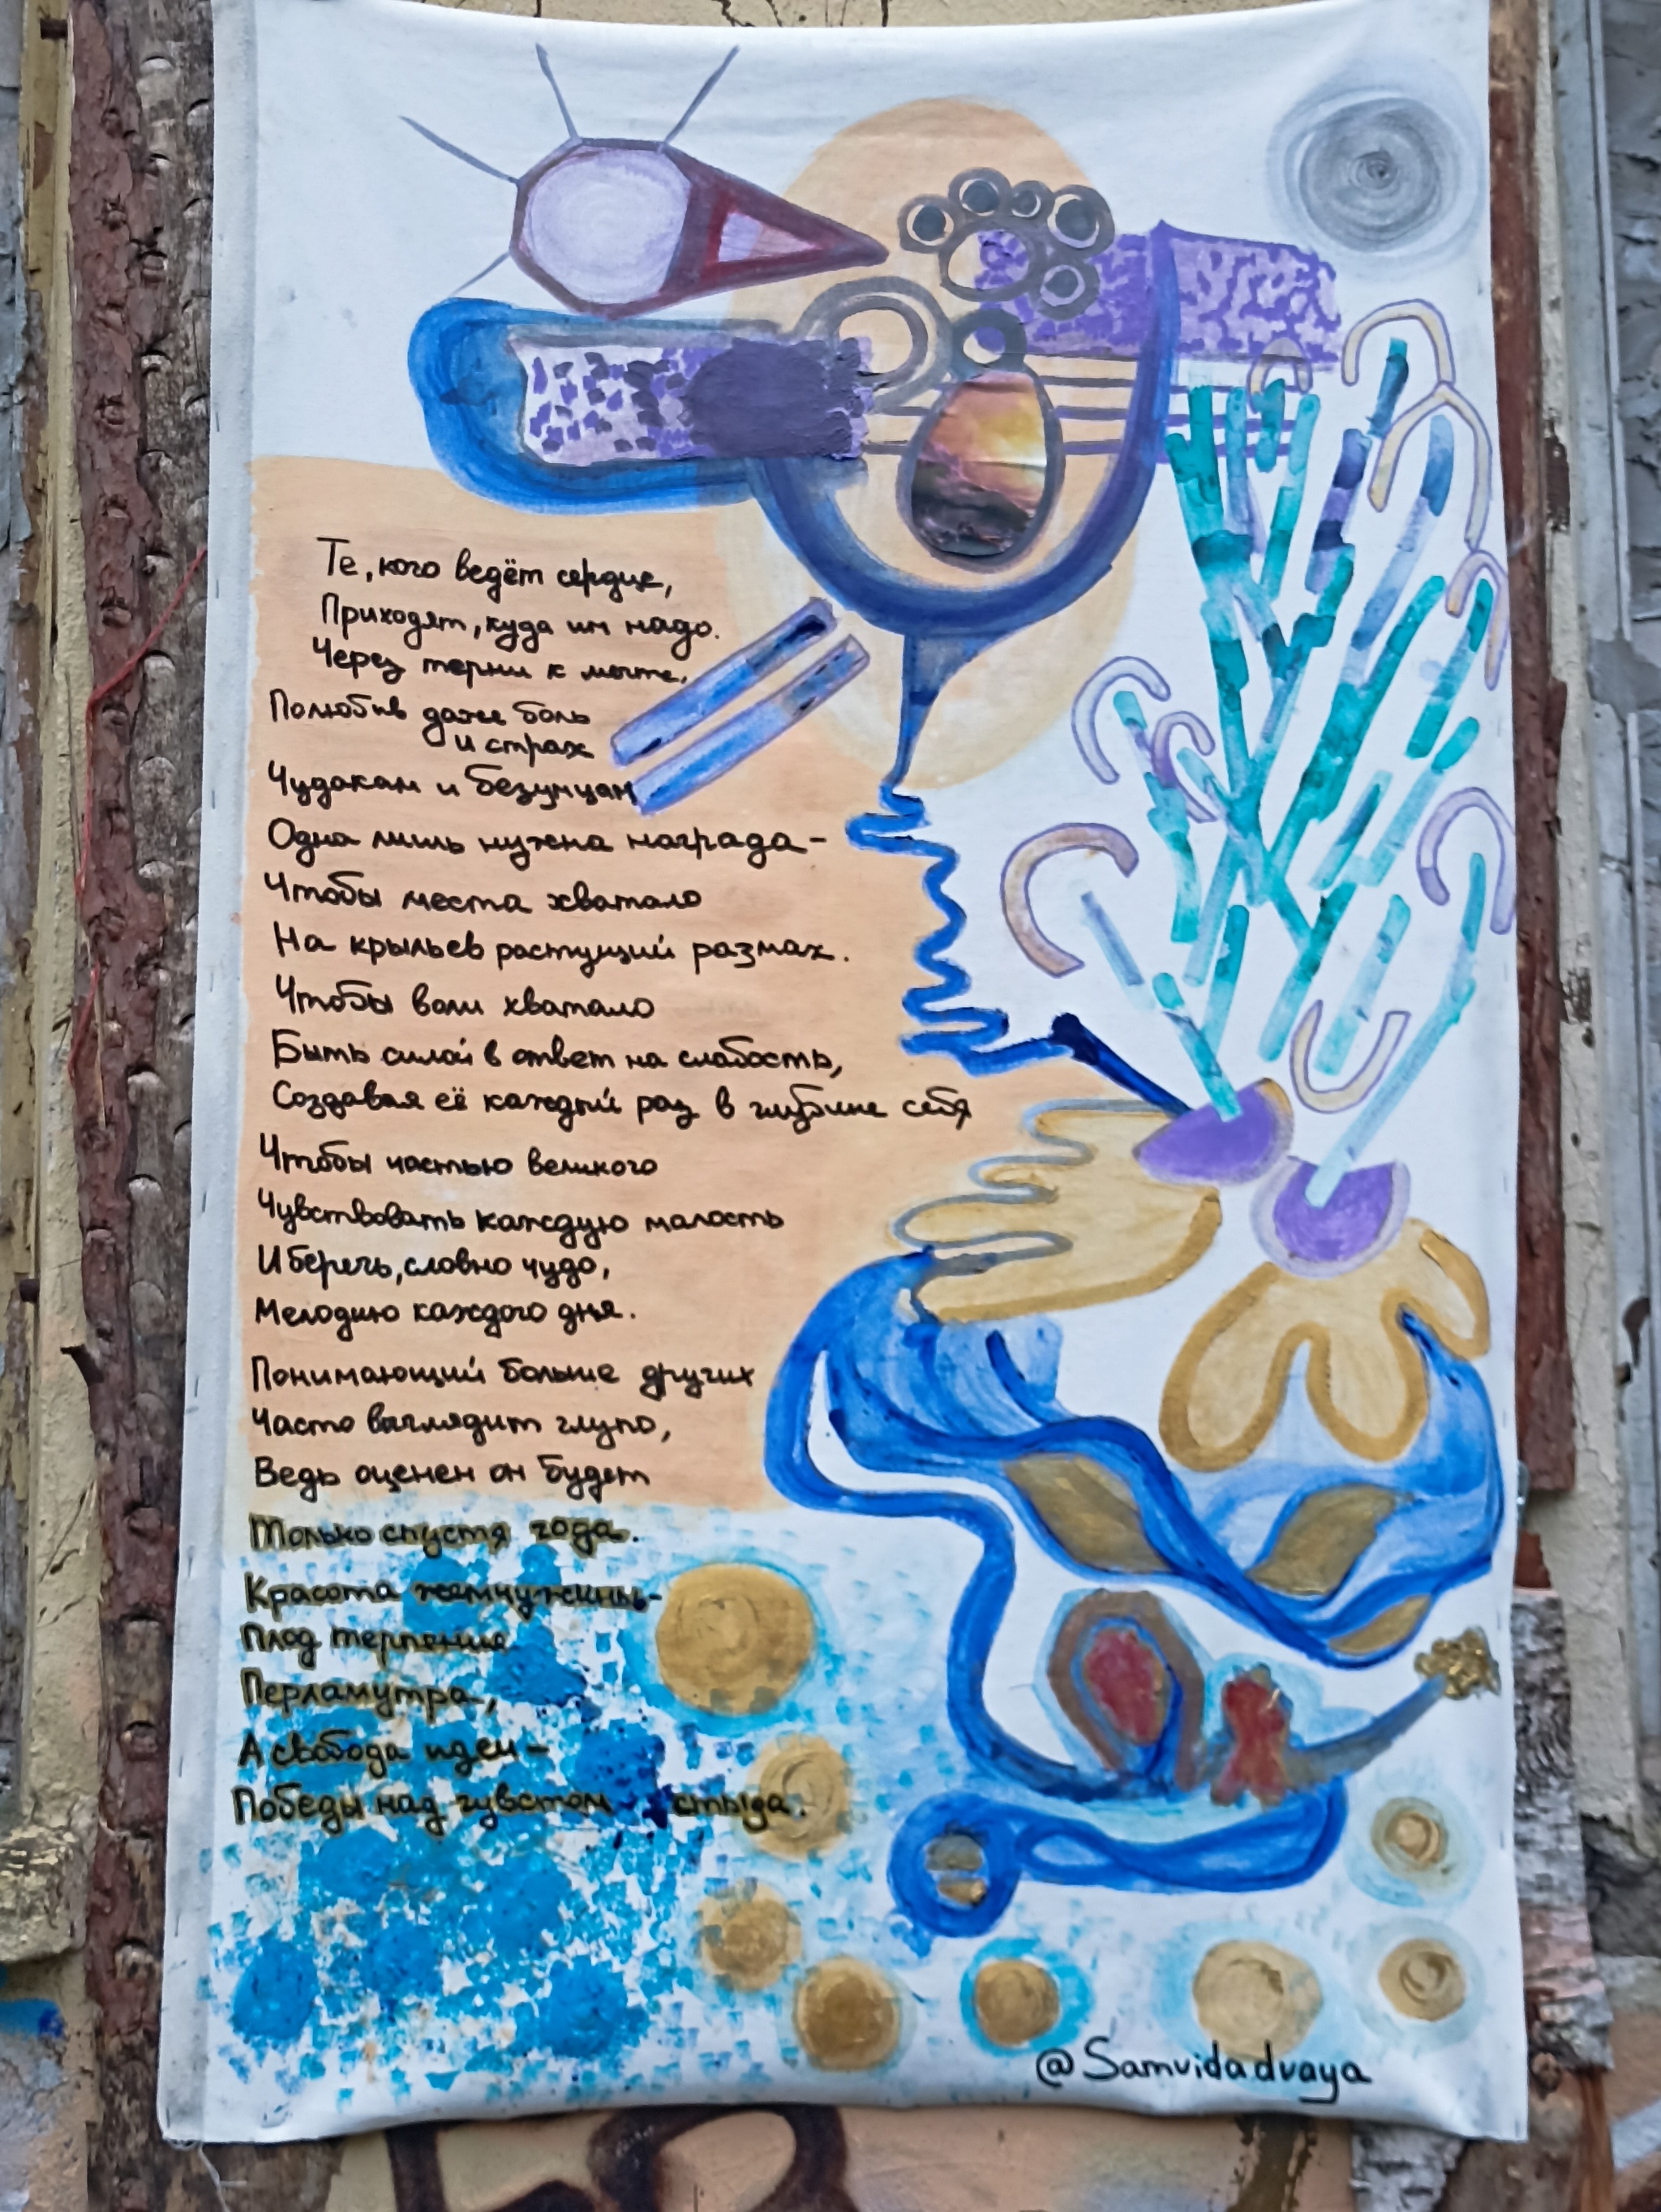 Те, кого ведёт сердце,
Приходят, куда им надо.
Через терни к мечте,
Полюбив даже боль
и страх
Чудакам и безумцам
Одна лишь нужна награда -
Чтобы места хватало
На крыльев растущий размах.
Чтобы воли хватало
Быть силой в ответ на слабость,
Создавая её каждый раз в глубине себя
Чтобы частью великого
Чувствовать каждую малость
И беречь, словно чудо,
Мелодию каждого дня.
Понимающий больше других
Часто выглядит глупо,
Ведь оценен он будет
Только спустя года.
Красота жемчужины -
Плод терпения
Перламутра,
А свобода идеи -
Победы над чувством стыда.
@Samvidadvaya